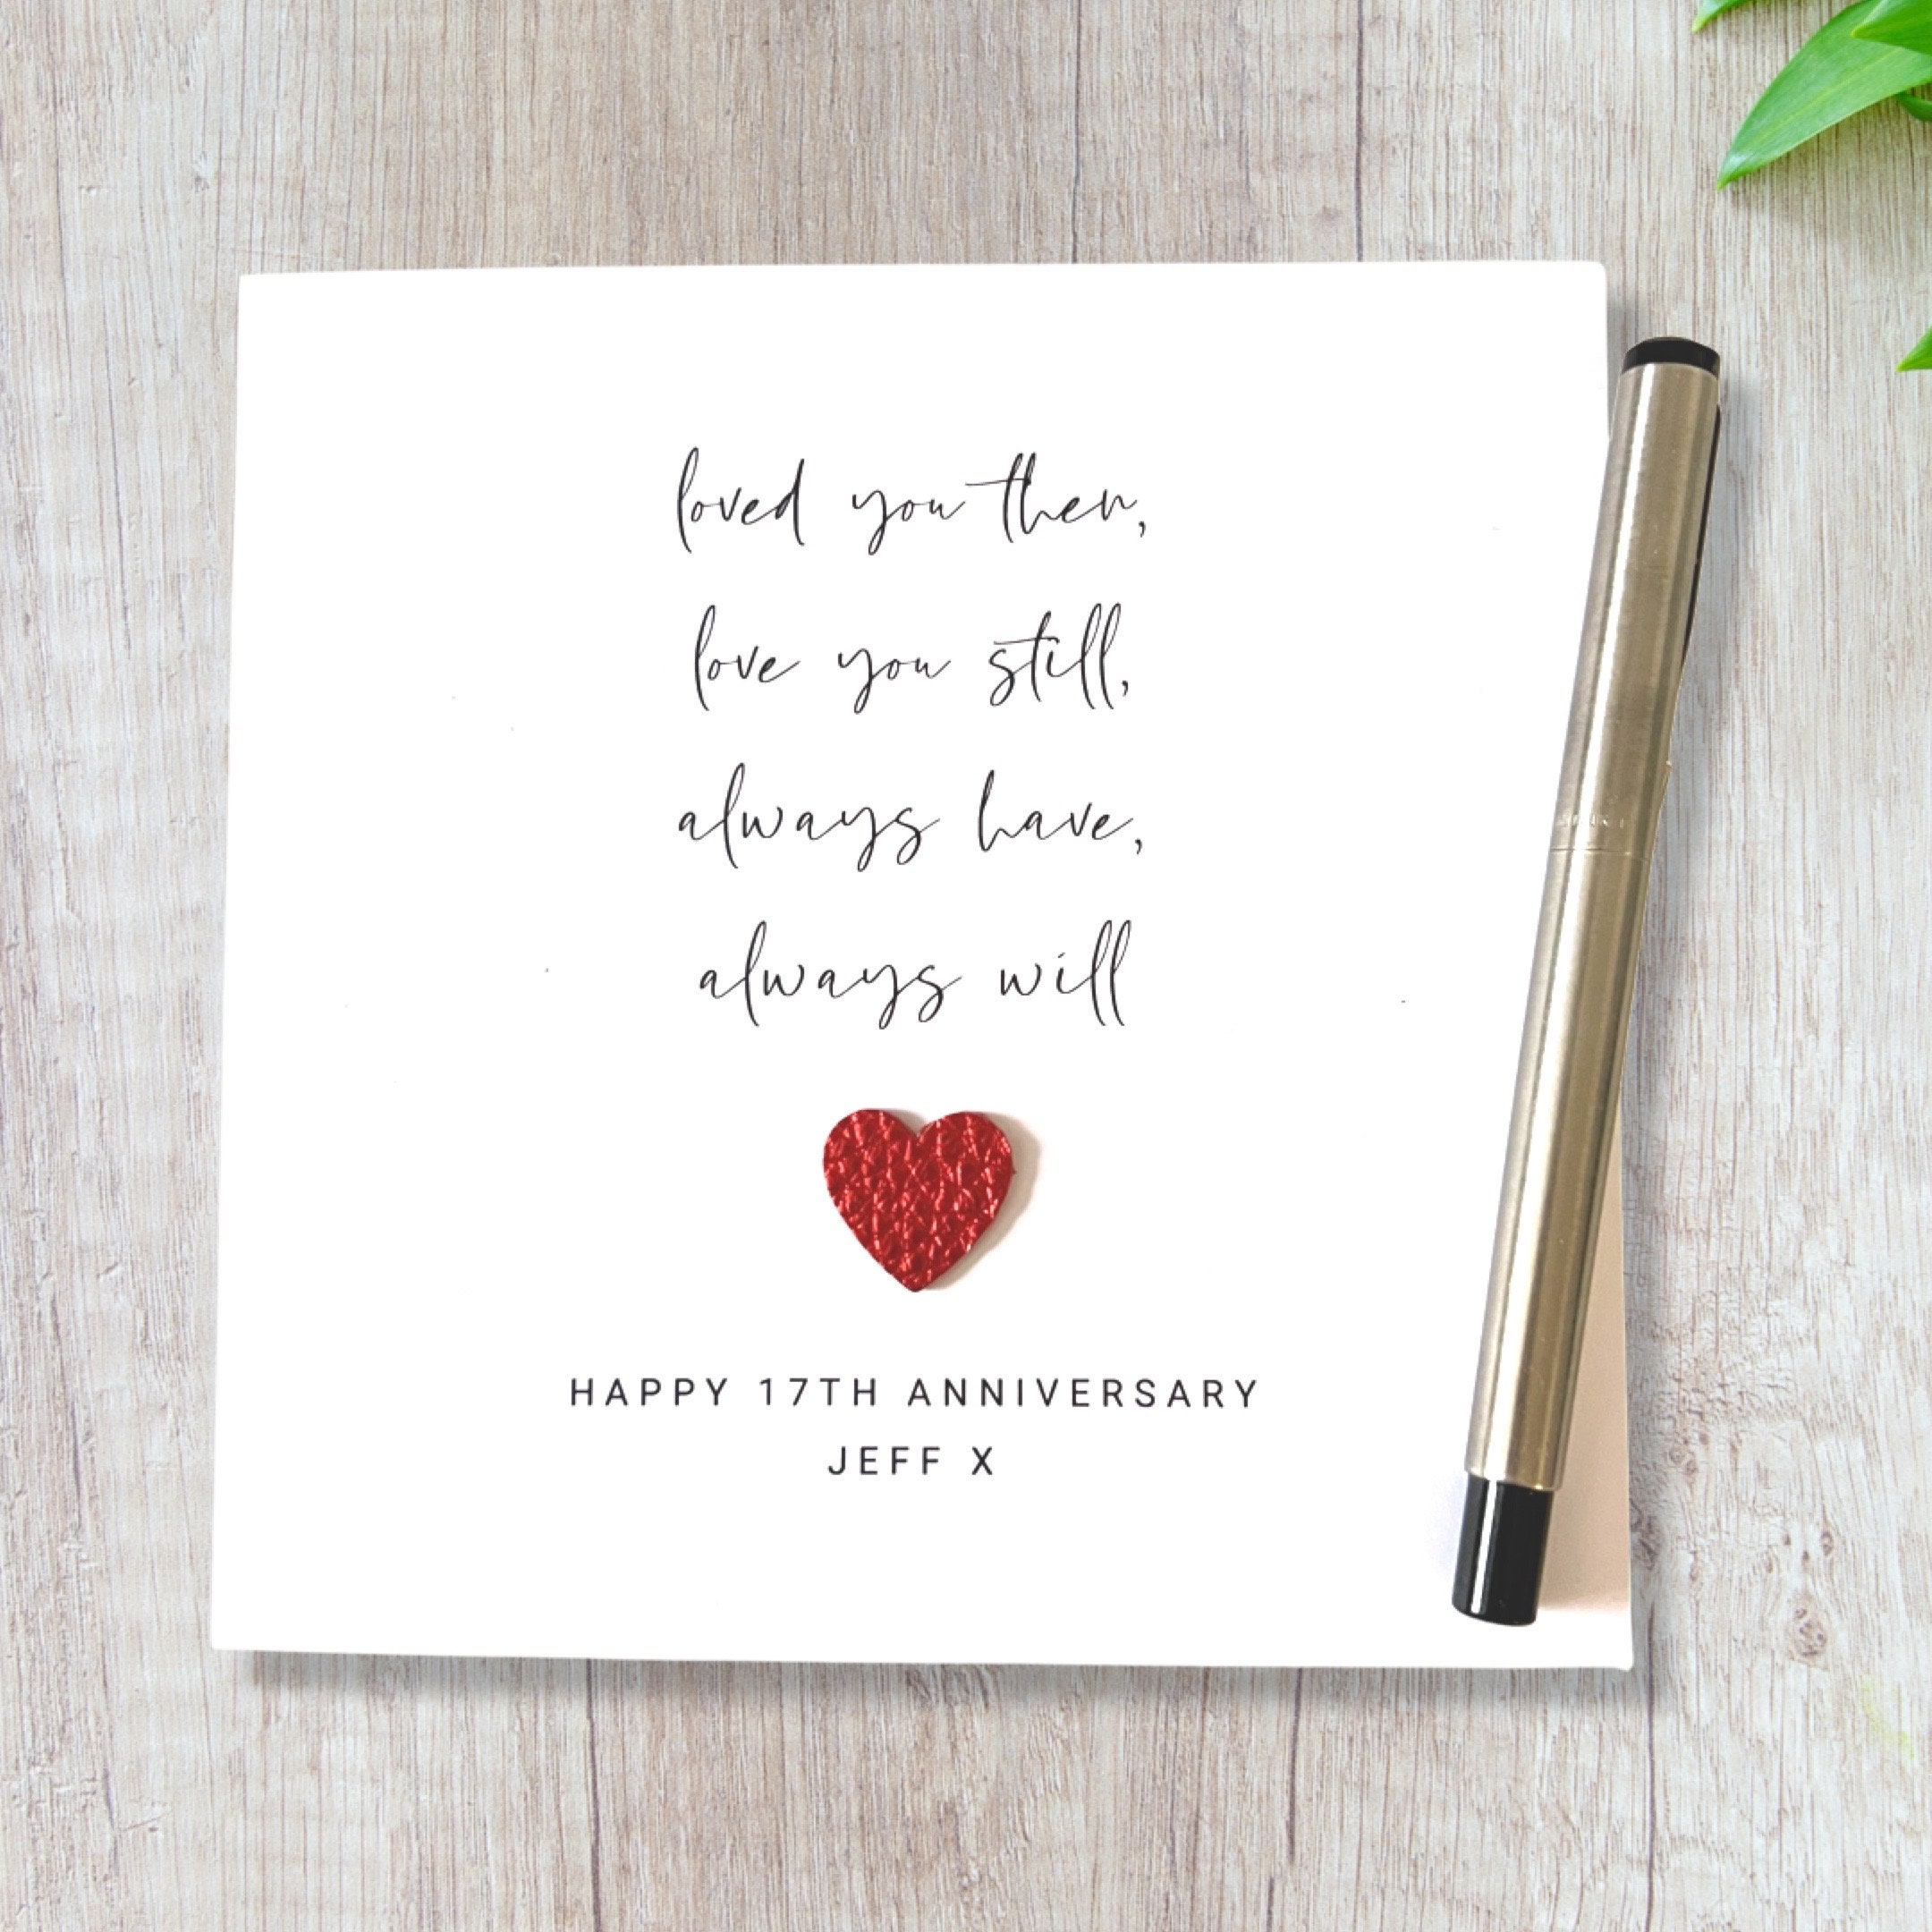 loved you then,
love you still,
always have,
always will
HAPPY 17TH ANNIVERSARY
JEFF X